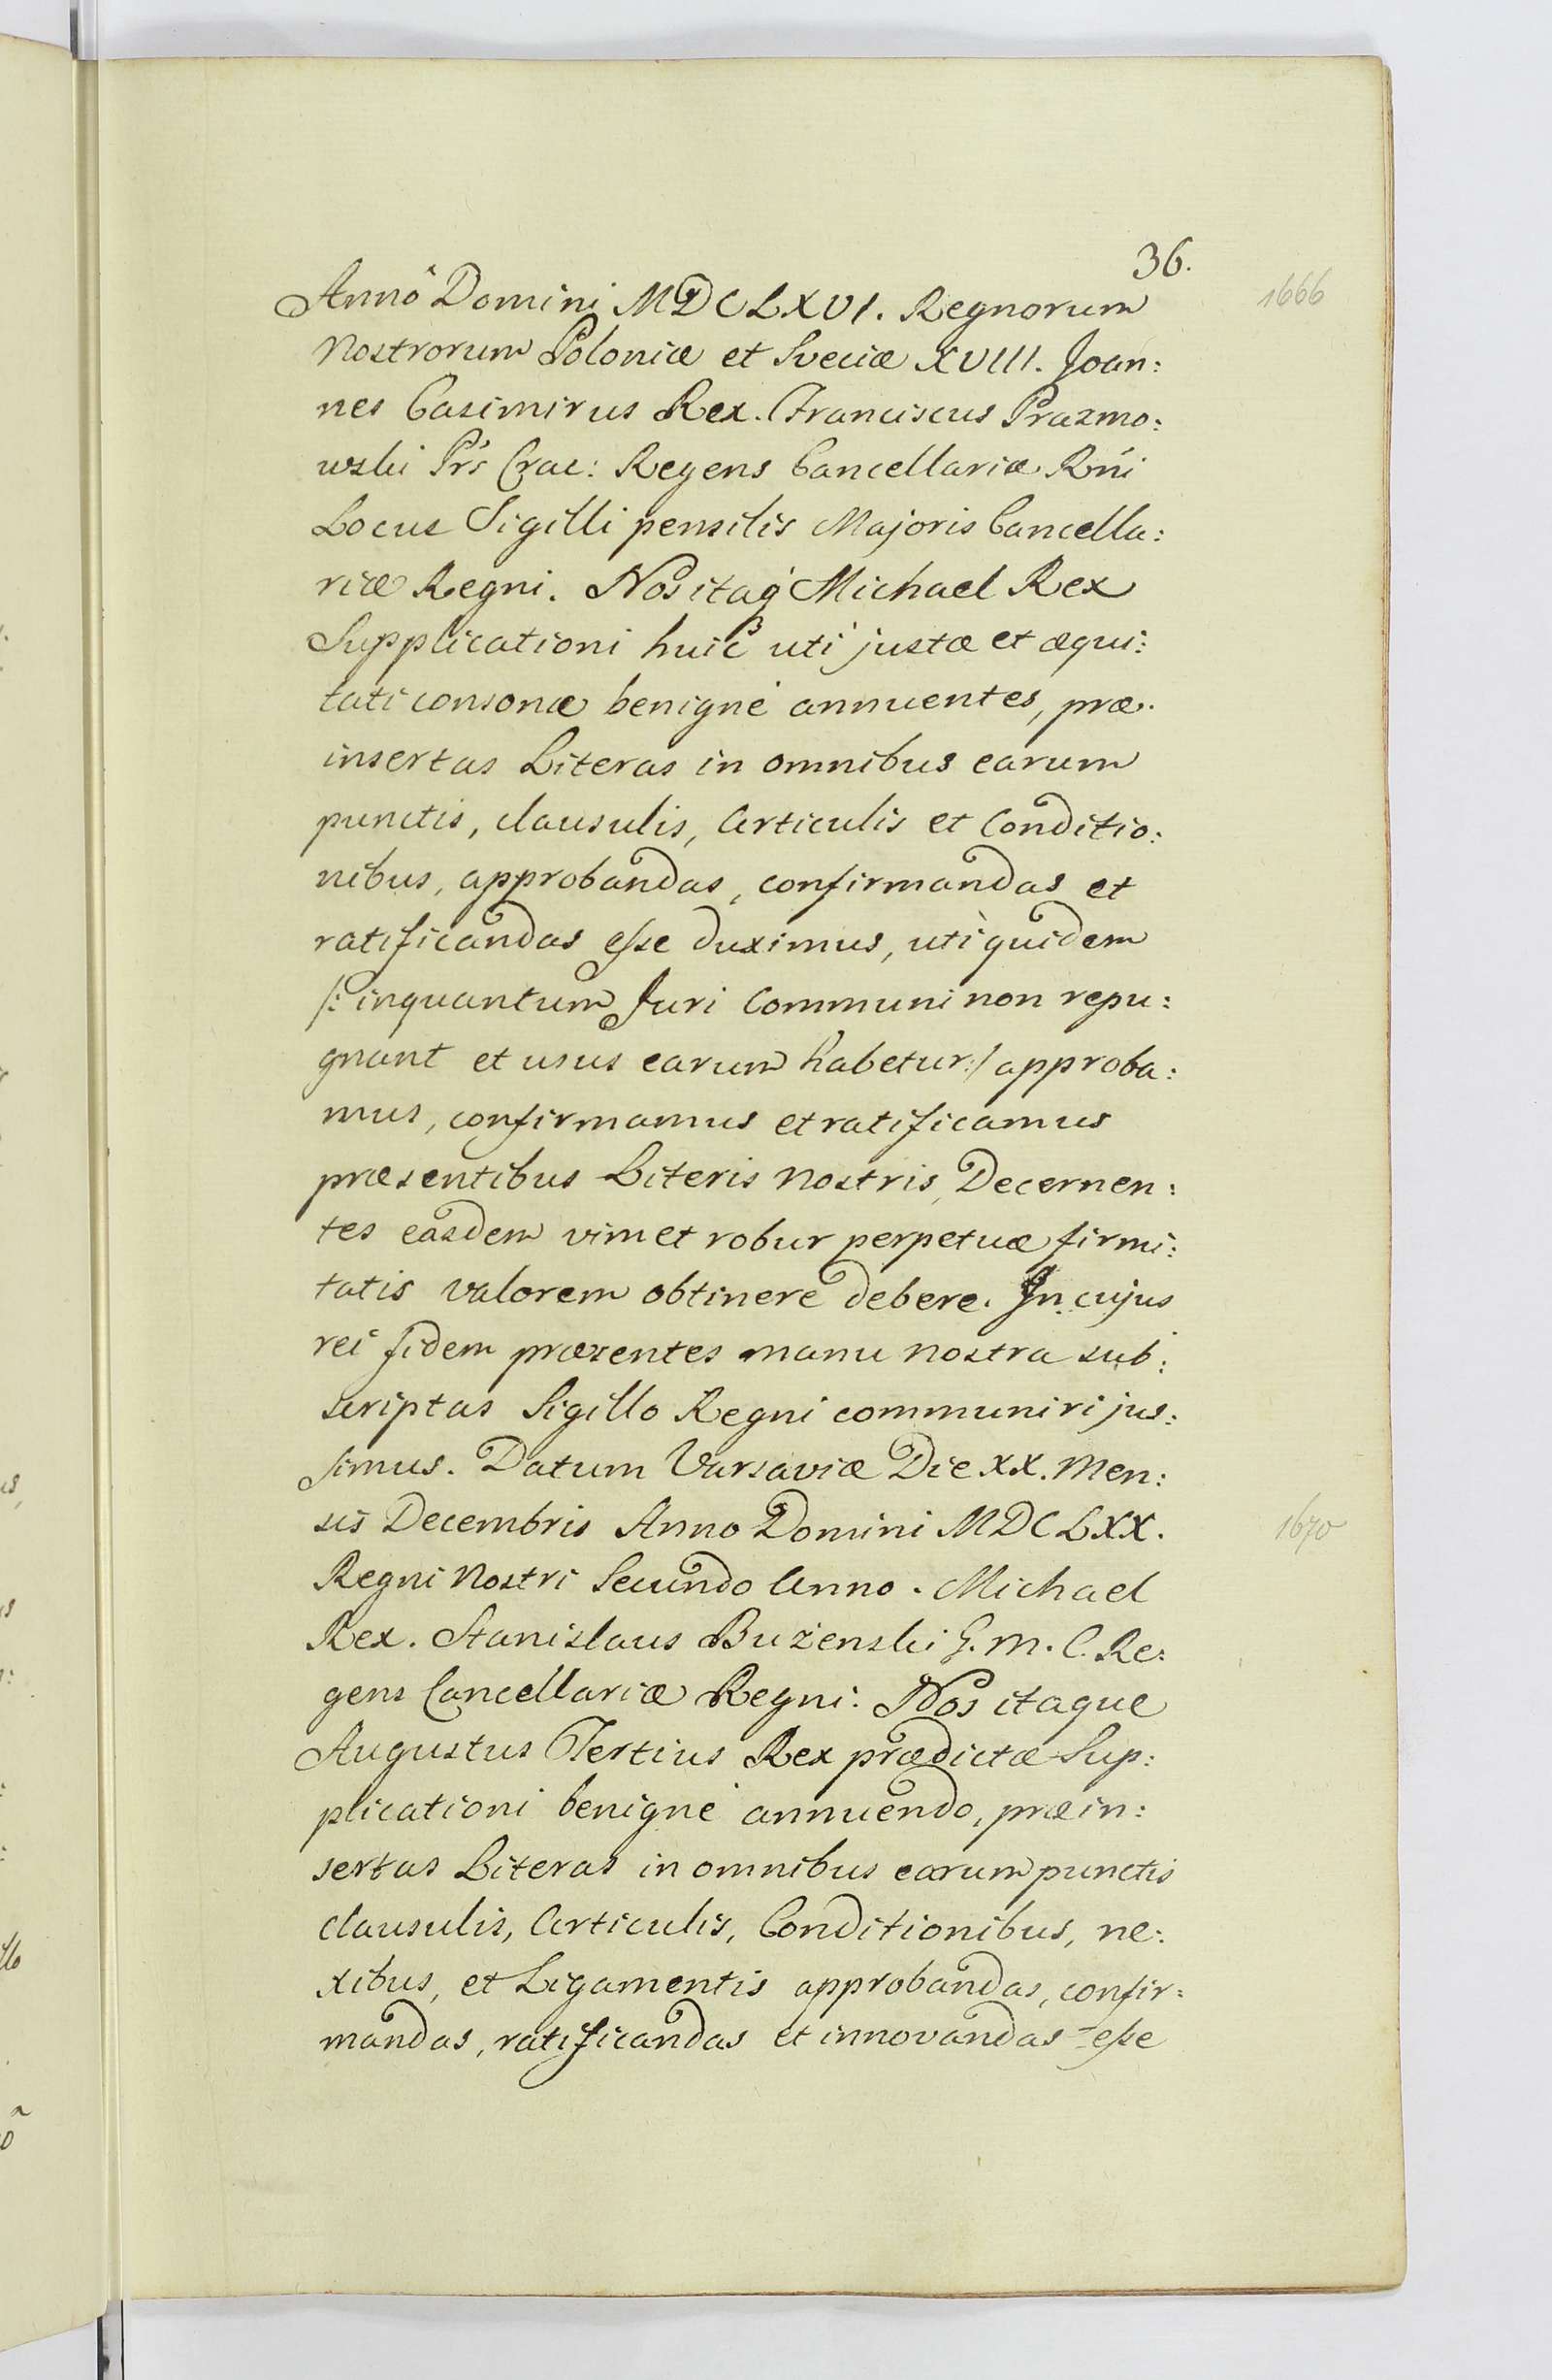 36.
Annô Domini MDCLXVI. Regnorum
1666
Nostrorum Poloniæ et Sveciæ XVIII. Joan:
nes Casimirus Rex. Franciscus Prazmo:
wski Prs Crac: Regens Cancellariæ Rni
Locus Sigilli pensilis Majoris Cancella:
riæ Regni. Nos itaq Michael Rex
Supplicationi huic uti justæ et æqui:
tati consonæ benignè annuentes, præ:
insertas Literas in omnibus earum
punctis, clausulis, Articulis et Conditio:
nibus, approbandas, confirmandas et
ratificandas esse duximus, uti quidem
/: inquantum Juri Communi non repu:
gnant et usus earum habetur:/ approba:
mus, confirmamus et ratificamus
præsentibus Literis Nostris, Decernen:
tes easdem vim et robur perpetuæ firmi:
tatis valorem obtinere debere. In cujus
rei fidem præsentes manu nostra sub:
scriptas Sigillo Regni communiri jus:
simus. Datum Varsaviæ Die XX. Men:
sis Decembris Anno Domini MDCLXX.
1670
Regni Nostri Secundo Anno. Michael
Rex. Stanislaus Bużenski G. M. C. Re:
gens Cancellariæ Regni: Nos itaque
Augustus Tertius Rex prædictæ Sup:
plicationi benignè annuendo, præin:
sertas Literas in omnibus earum punctis
clausulis, Articulis, Conditionibus, ne:
xibus, et Ligamentis approbandas, confir:
mandas, ratificandas et innovandas esse